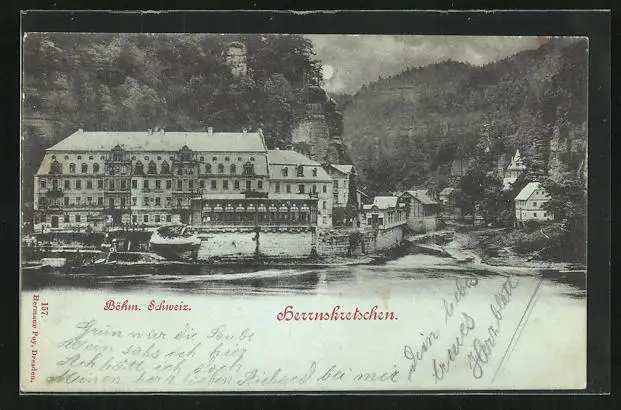 Böhm. Schweiz.
Herrnskretschen.
157. Hermann Poy, Dresden.
Grün war die Laube
Klein sahs ich hier
Ach hätt ich doch
Meinen herzlieben Richard bei mir
Dein liebes
treues
Herzblatt